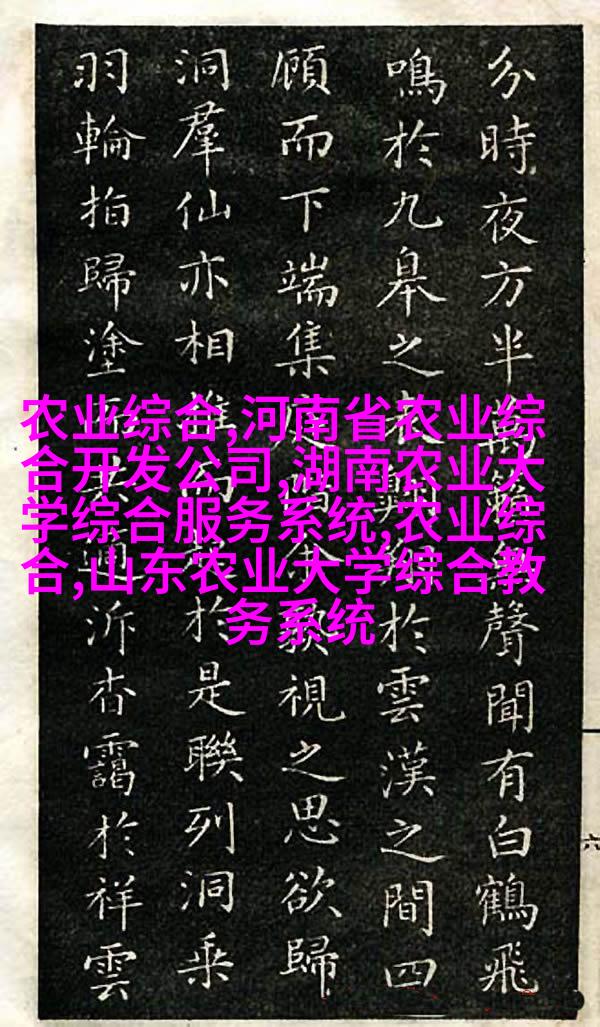 农业综合,河南省农业综
合开发公司,湖南农业大
学综合服务系统,农业综
合,山东农业大学综合教
务系统
分時夜方半萬籟聲聞有白鶴飛
鳴於九皋之表於雲漢之間四
顧而下端集視之思欲歸
洞羣仙亦相而於是聯列洞乘
羽輪指歸塗泝杳靄於祥雲
六